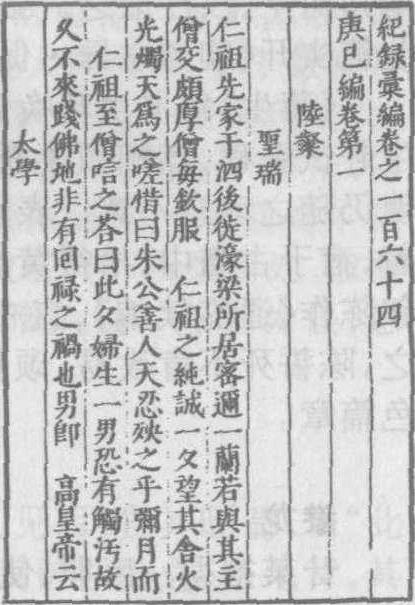 紀録彙編卷之一百六十四
庚巳編卷第一
陸粲
聖瑞
仁祖先家于泗後徙濠梁所居密邇一蘭若與其主
僧交頗厚僧每欽服　仁祖之純誠一夕望其舍火
光燭天爲之嗟惜曰朱公善人天忍殃之乎彌月而
仁祖至僧唁之荅曰此夕婦生一男恐有觸汚故
久不來踐佛地非有囘禄之禍也男卽　高皇帝云
太學